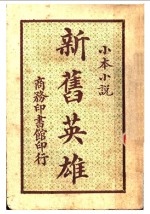 小本小說
新舊英雄
商務印書館印行